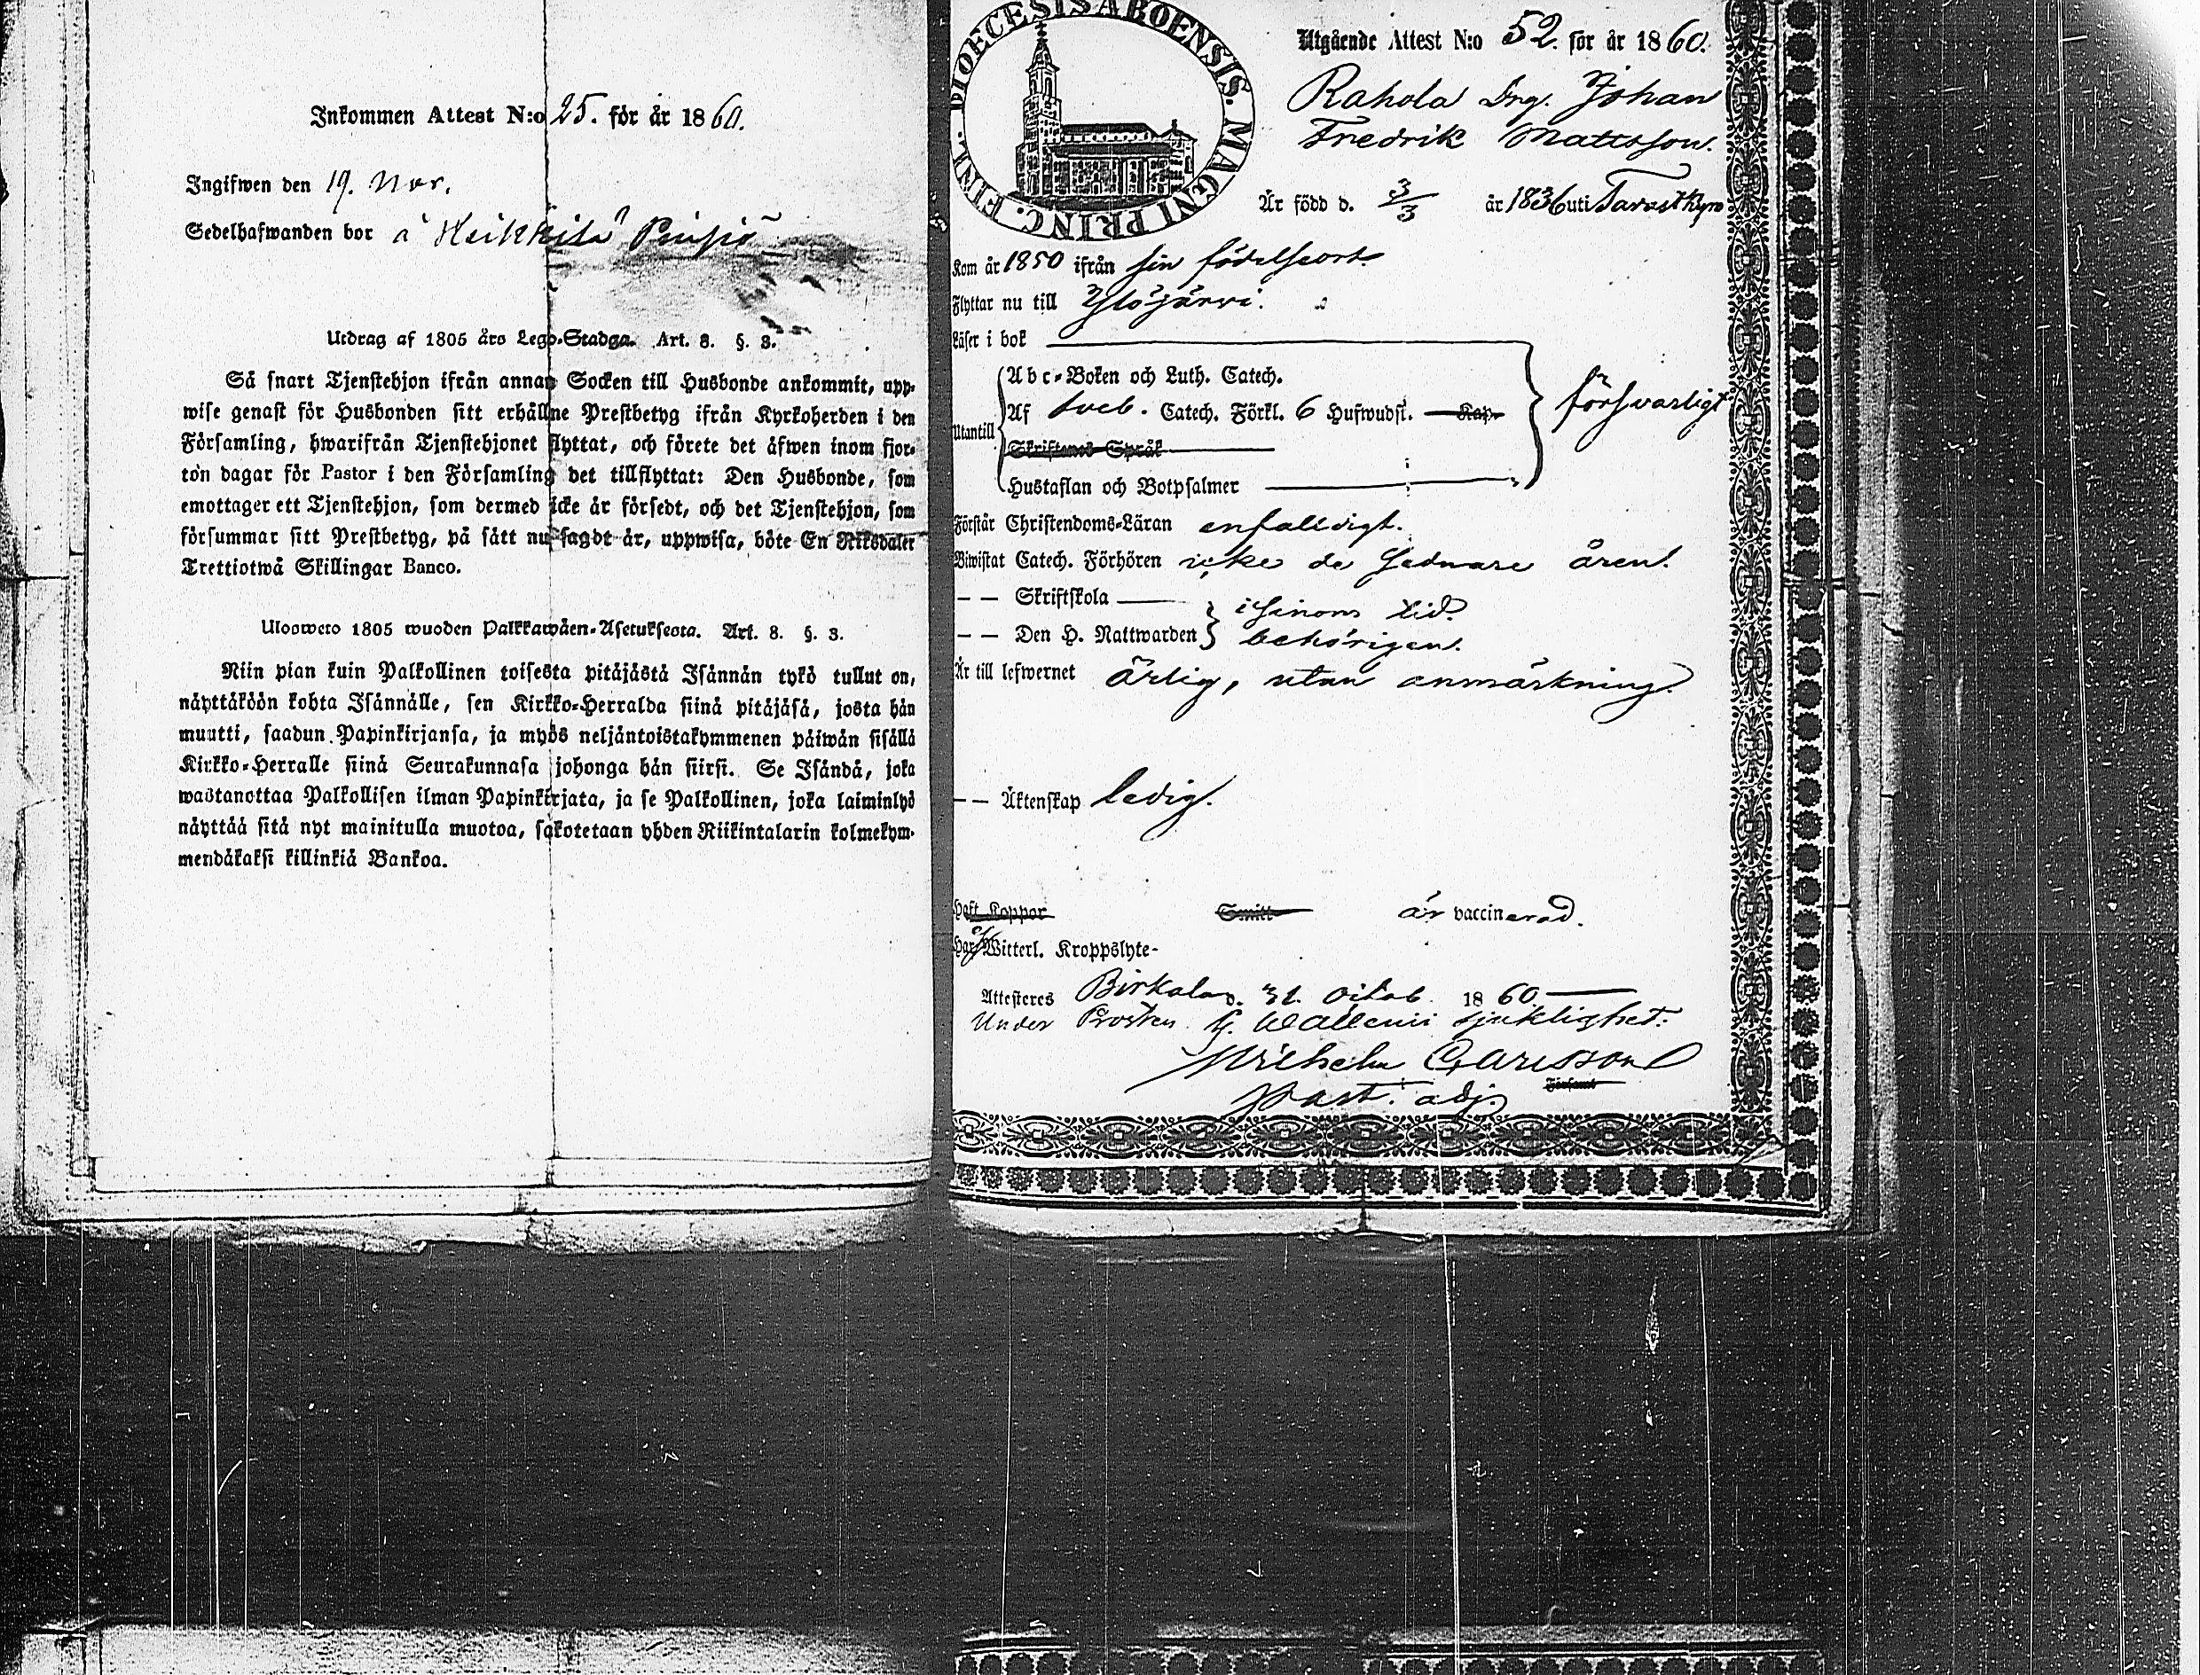 Inkommen Attest N:o 25. för år 1860.
Ingifwen den 19. Nov.
Sedelhafwanden bor å Heikkilä Pinsiö
Utdrag af 1805 års Lego-Stadga. Art. 8. §. 3.
Så snart Tjenstehjon ifrån annan Socken till Husbonde ankommit, upp-
wise genast för Husbonden sitt erhållne Prestbetyg ifrån Kyrkoherden i den
Församling, hwarifrån Tjenstehjonet flyttat, och förete det äfwen inom fjor-
ton dagar för Pastor i den Församling det tillflyttat: Den Husbonde, som
emottager ett Tjenstehjon, som dermed icke är försedt, och det Tjenstehjon, som
försummar sitt Prestbetyg, på sätt nu sagdt är, uppwisa, böte En Riksdaler
Trettiotwå Skillingar Banco.
Ulosweto 1805 wuoden Palkkawäen-Asetuksesta. Art. 8. §. 3.
Niin pian kuin Palkollinen toisesta pitäjästä Isännän tykö tullut on,
näyttäköön kohta Isännälle, sen Kirkko-Herralda siinä pitäjäsä, josta hän
muutti, saadun Papinkirjansa, ja myös neljäntoistakymmenen päiwän sisällä
Kirkko-Herralle siinä Seurakunnasa johonga hän siirsi. Se Isändä, joka
wastanottaa Palkollisen ilman Papinkirjata, ja se Palkollinen, joka laiminlyö
näyttää sitä nyt mainitulla muotoa, sakotetaan yhden Riikintalarin kolmekym-
mendäkaksi killinkiä Bankoa.
DIOECESIS ABOENSIS. MAGNI PRINC. FINL.
Utgående Attest N:o 52. för år 1860.
Rahola Drg. Johan
Fredrik Mattsson.
Är född d. 3/3 år 1836 uti Tavastkyro
Kom år 1850 ifrån sin födelseort
Flyttar nu till Ylöjärvi.
Läser i bok
Utantill
Abc-Boken och Luth. Catech.
Af Sveb. Catech. Förkl. 6 Hufwudst. Kap.
försvarligt
Skriftenes Språk
Hustaflan och Botpsalmer
Förstår Christendoms-Läran enfaldigt.
Biwistat Catech. Förhören icke de sednare åren.
— — Skriftskola
i sinom tid
— — Den H. Nattwarden
behörigen.
Är till lefwernet ärlig, utan anmärkning.
— — Äktenskap ledig.
Haft Koppor Smitt är vaccinerad.
Har ej Witterl. Kroppslyte-
Attesteres Birkala d. 31. Octob. 1860
Under Prosten G. Wallenii sjuklighet:
Wilhelm Carlsson
Past. adj.
Församl